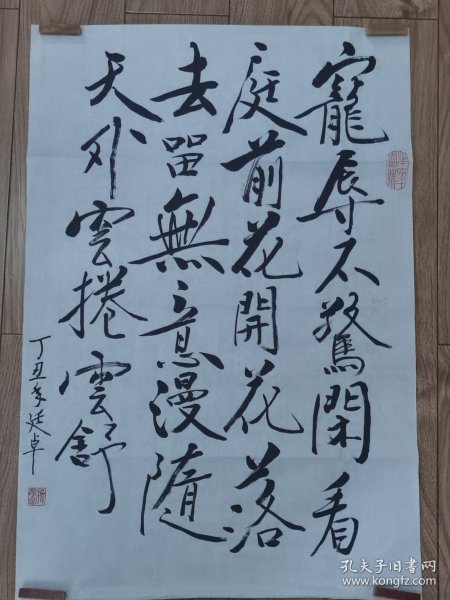 寵辱不驚閑看
庭前花開花落
去留無意漫隨
天外雲捲雲舒
丁丑年廷卓
孔夫子旧书网
www.kongfz.com